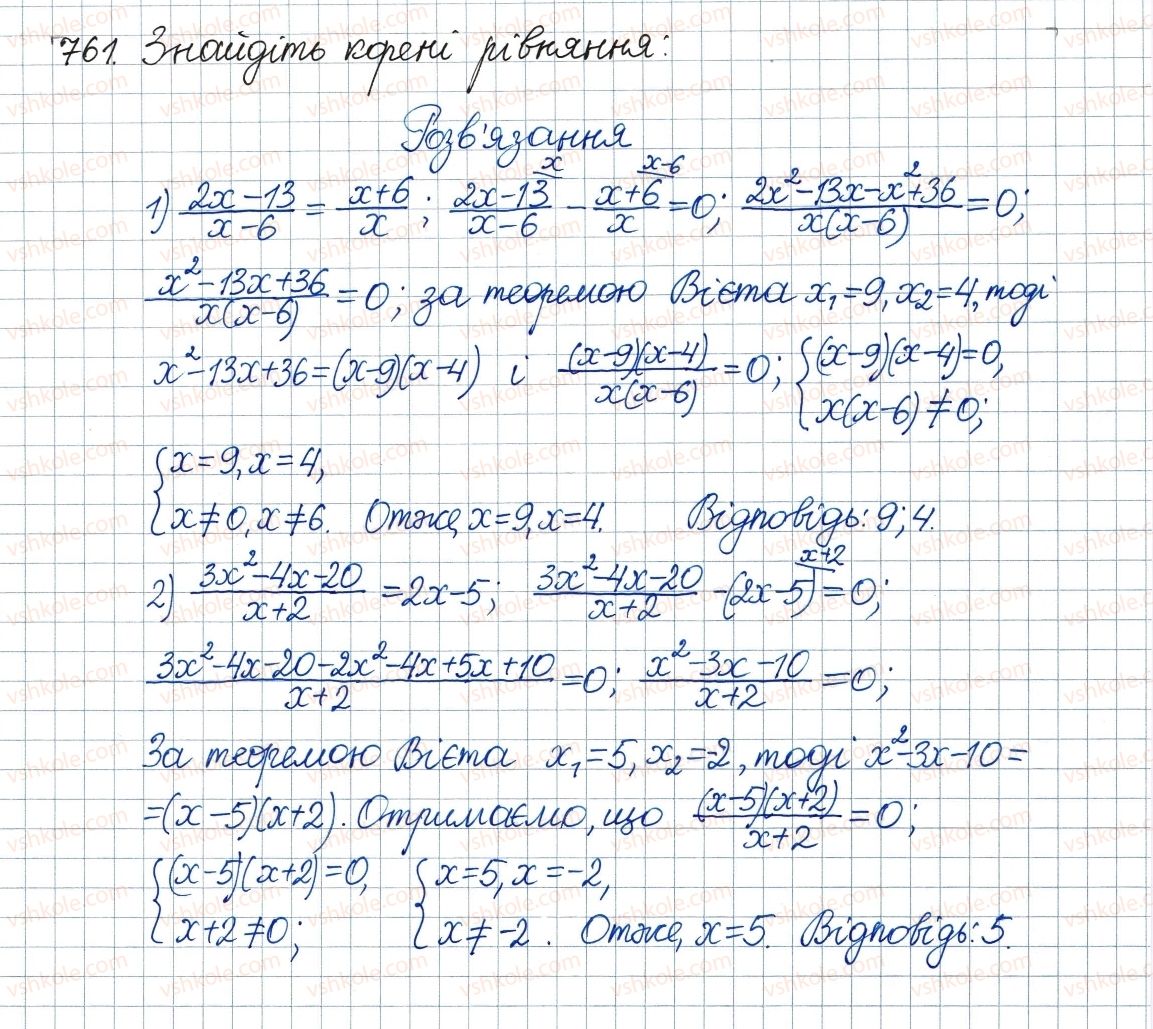 761. Знайдіть корені рівняння:
Розв'язання
1) (2x-13)/(x-6) = (x+6)/x; (2x-13)/(x-6) ^x - (x+6)/x ^(x-6) = 0; (2x²-13x-x²+36)/(x(x-6)) = 0;
(x²-13x+36)/(x(x-6)) = 0; за теоремою Вієта x₁=9, x₂=4, тоді
x²-13x+36=(x-9)(x-4) і ((x-9)(x-4))/(x(x-6)) = 0; { (x-9)(x-4)=0, x(x-6)≠0;
{ x=9, x=4,
x≠0, x≠6. Отже, x=9, x=4. Відповідь: 9; 4.
2) (3x²-4x-20)/(x+2) = 2x-5; (3x²-4x-20)/(x+2) - (2x-5) ^(x+2) = 0;
(3x²-4x-20-2x²-4x+5x+10)/(x+2) = 0; (x²-3x-10)/(x+2) = 0;
За теоремою Вієта x₁=5, x₂=-2, тоді x²-3x-10=
=(x-5)(x+2). Отримаємо, що ((x-5)(x+2))/(x+2) = 0;
{ (x-5)(x+2)=0, { x=5, x=-2,
x+2≠0; x≠-2. Отже, x=5. Відповідь: 5.